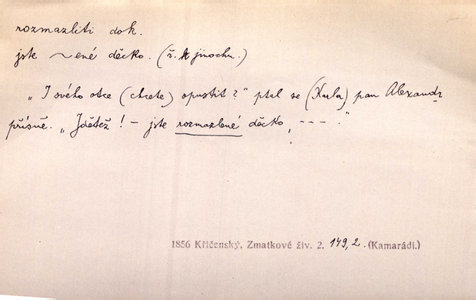 rozmazliti dok.
jste ~ené děcko. (ř. k jinochu.)
„I svého otce (chcete) opustit?" ptal se (Karla) pan Alexandr
přísně. „Jděte! – jste rozmazlené děcko, ---."
1856 Křičenský, Zmatkové živ. 2, 149,2. (Kamarádi.)